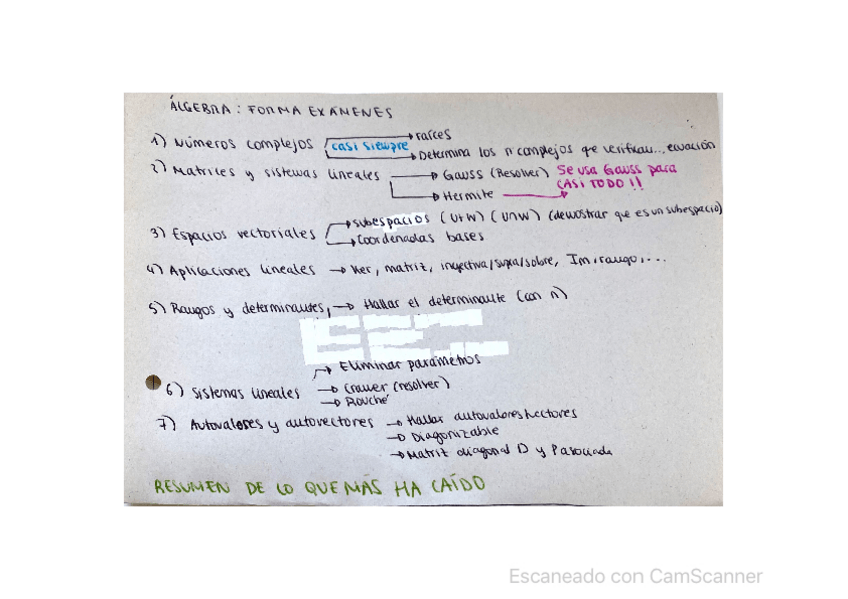 ÁLGEBRA: FORMA EXÁMENES
1) Números complejos casi siempre → raíces
→ Determina los n complejos que verifican... ecuación
2) Matrices y sistemas lineales → Gauss (Resolver) Se usa Gauss para
→ Hermite → CASI TODO!!
3) Espacios vectoriales → subespacios (U+W) (U∩W) (demostrar que es un subespacio)
→ Coordenadas bases
4) Aplicaciones lineales → Ker, matriz, inyectiva/supra/sobre, Im, rango, ...
5) Rangos y determinantes, → Hallar el determinante (con n)
→ Eliminar parámetros
6) Sistemas lineales → Cramer (resolver)
→ Rouché
7) Autovalores y autovectores → Hallar autovalores/vectores
→ Diagonizable
→ Matriz diagonal D y P asociada
RESUMEN DE LO QUE MÁS HA CAÍDO
Escaneado con CamScanner